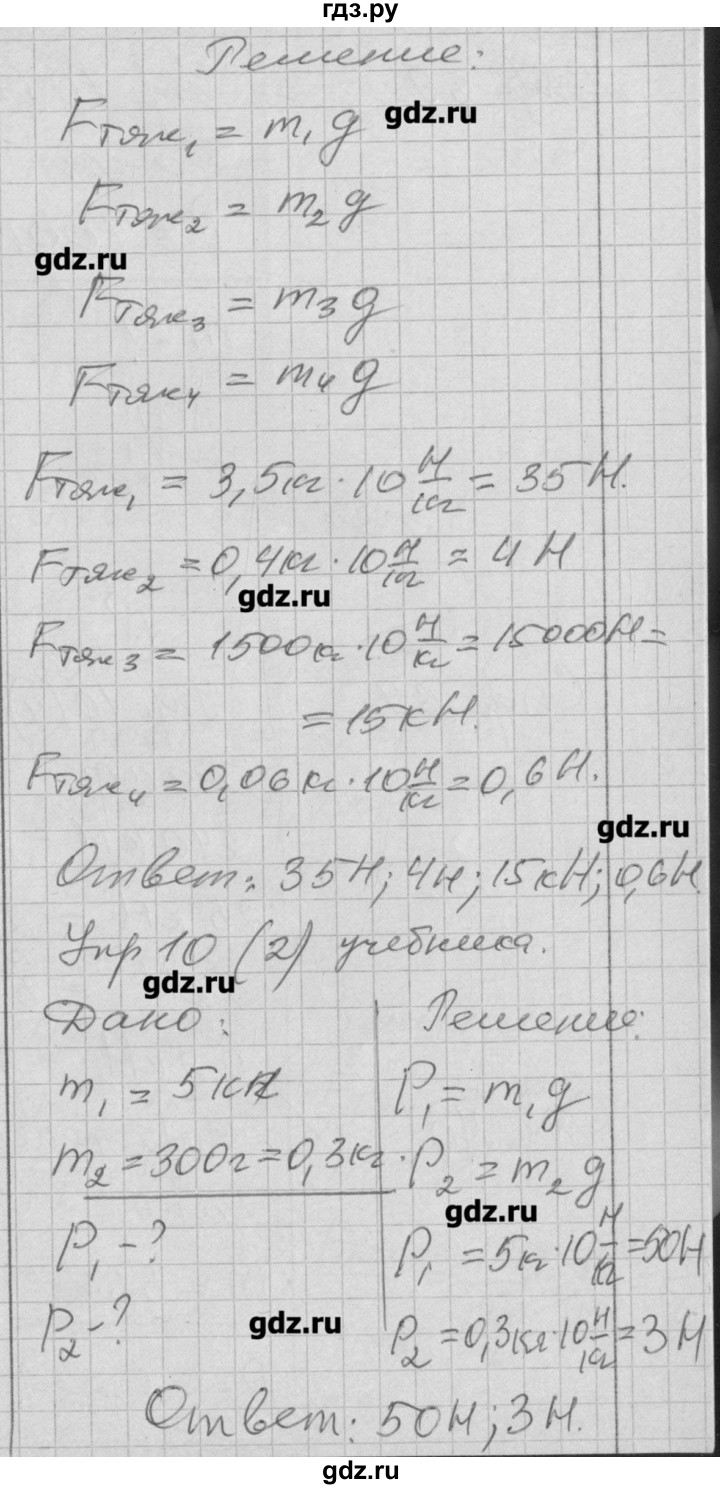 гдз.ру
Решение:
Fтяж₁ = m₁g
gdz.ru
Fтяж₂ = m₂g
gdz.ru
Fтяж₃ = m₃g
Fтяж₄ = m₄g
Fтяж₁ = 3,5кг · 10 Н/кг = 35 Н.
Fтяж₂ = 0,4кг · 10 Н/кг = 4 Н
gdz.ru
Fтяж₃ = 1500кг · 10 Н/кг = 15000Н =
= 15кН.
Fтяж₄ = 0,06кг · 10 Н/кг = 0,6Н.
gdz.ru
Ответ: 35Н; 4н; 15кН; 0,6Н.
Упр 10 (2) учебника.
gdz.ru
Дано:
m₁ = 5кг
m₂ = 300г = 0,3кг.
P₁ - ?
P₂ - ?
gdz.ru
Решение:
P₁ = m₁g
P₂ = m₂g
gdz.ru
P₁ = 5кг · 10 Н/кг = 50Н
P₂ = 0,3кг · 10 Н/кг = 3 Н
Ответ: 50Н; 3Н.
gdz.ru